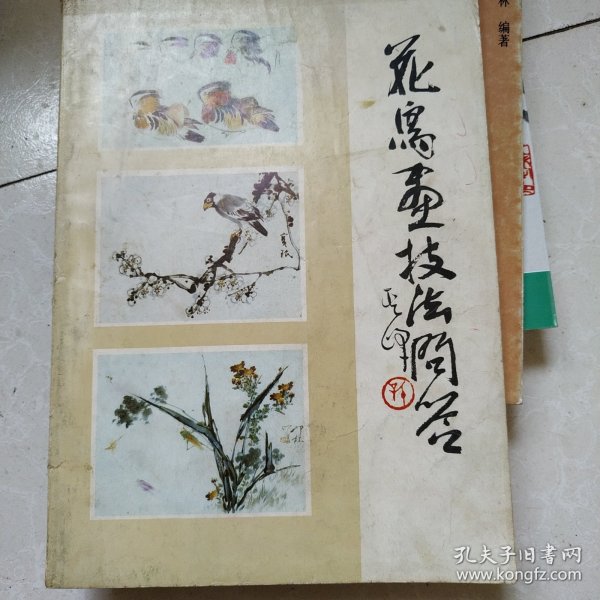 花鸟画技法问答
林 编著
孔夫子旧书网
www.kongfz.com